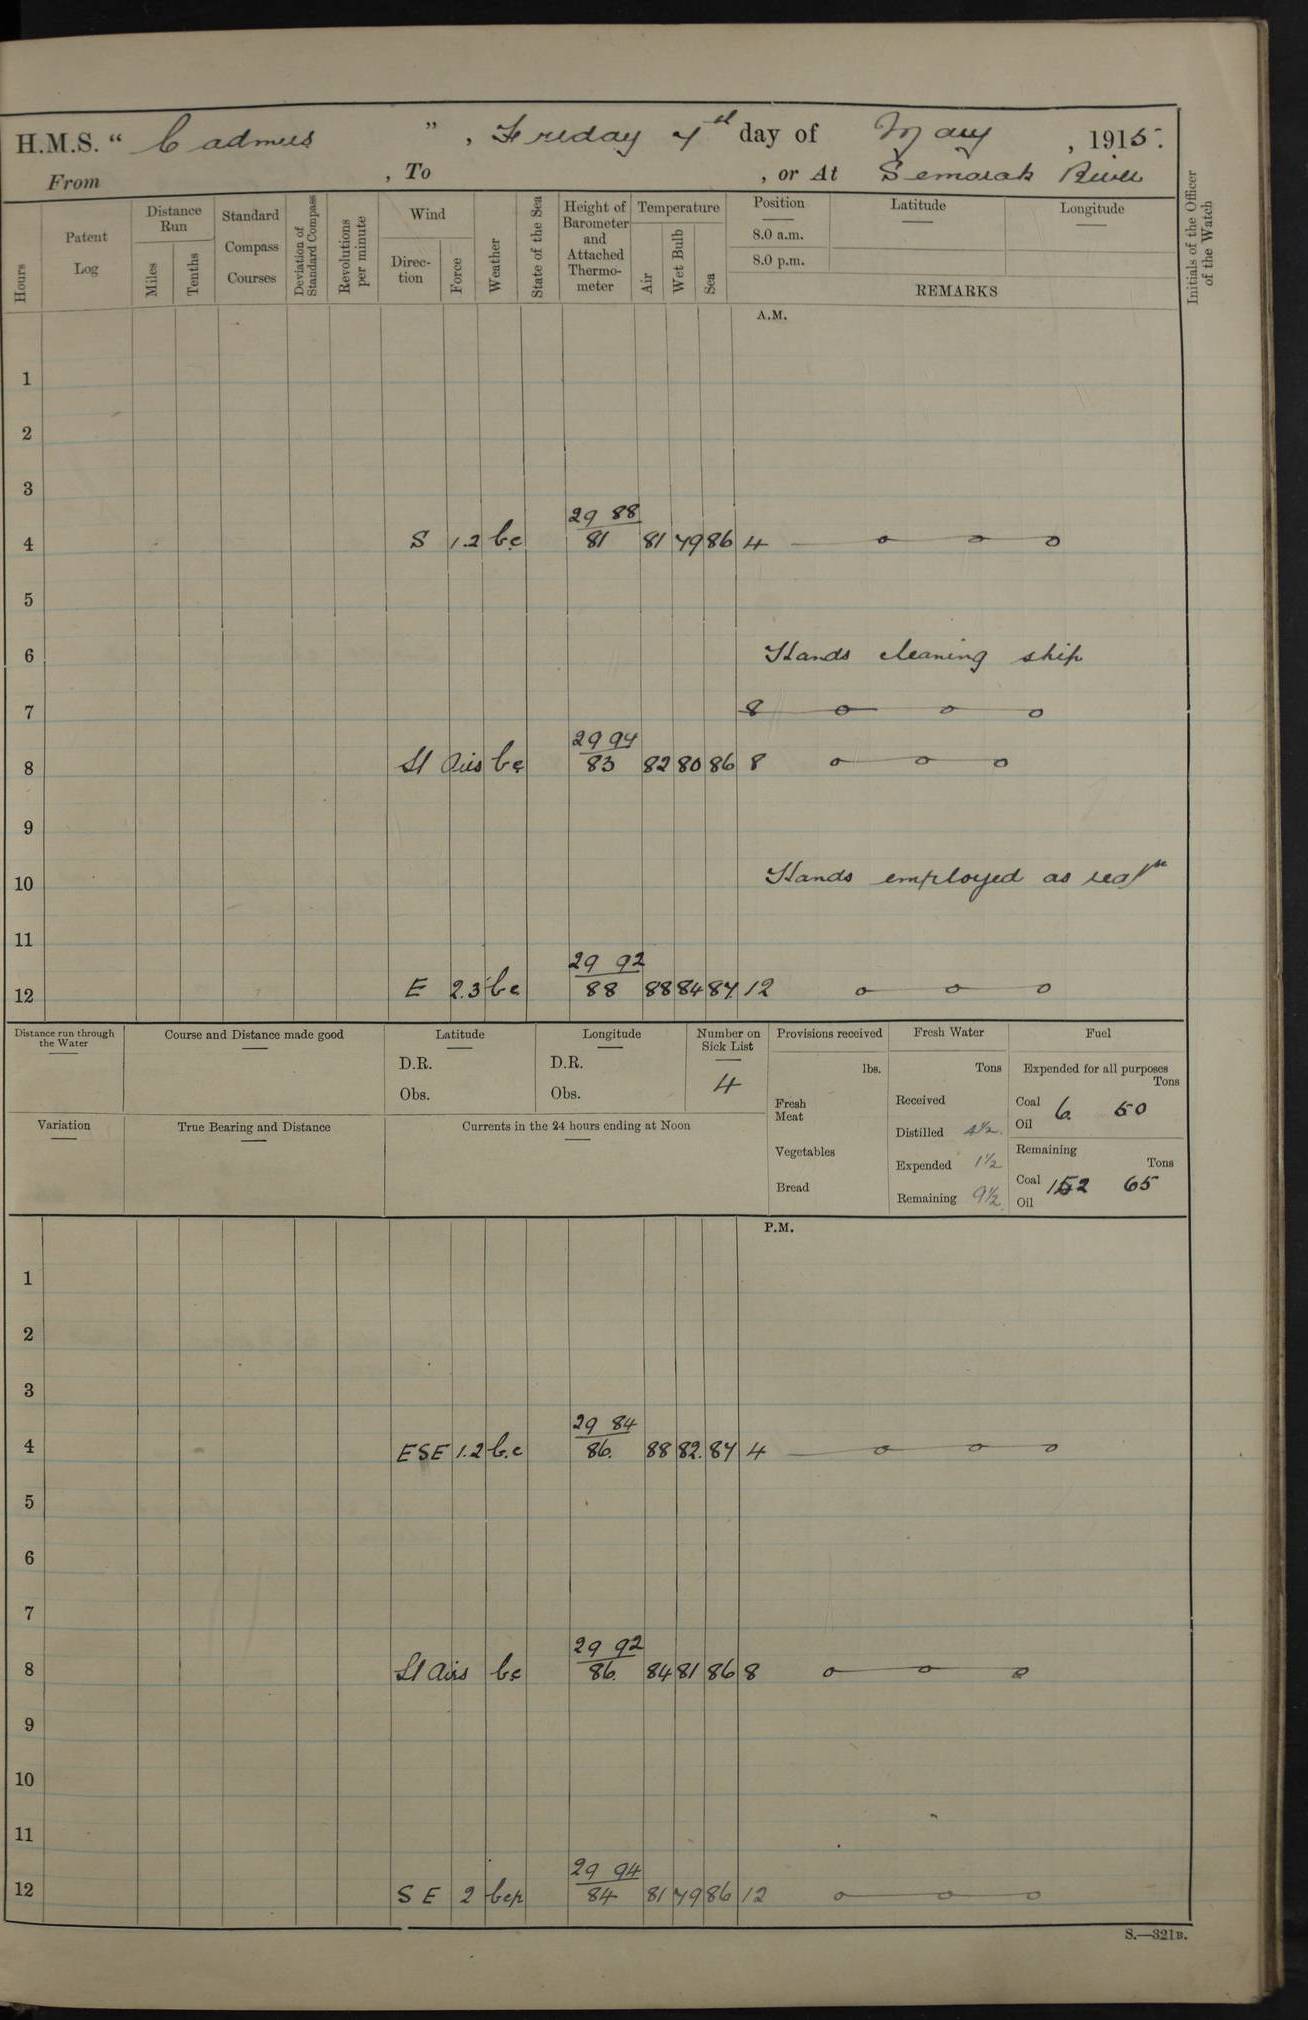 H.M.S. " Cadmus ", Friday 7th day of May, 1915.
From , To , or At Semarak River
Hours
Patent Log
Distance Run
Miles
Tenths
Standard Compass Courses
Deviation of Standard Compass
Revolutions per minute
Wind
Direction
Force
Weather
State of the Sea
Height of Barometer and Attached Thermometer
Temperature
Air
Wet Bulb
Sea
Position
8.0 a.m.
8.0 p.m.
Latitude
Longitude
REMARKS
Initials of the Officer of the Watch
A.M.
1
2
3
29 88
4 S 1.2 bc 81 81 79 86 4
5
6 Hands cleaning ship
7 8
29 94
8 Lt Airs bc 83 82 80 86 8
9
10 Hands employed as reqn
11
29 92
12 E 2.3 bc 88 88 84 87 12
Distance run through the Water
Course and Distance made good
Latitude
D.R.
Obs.
Longitude
D.R.
Obs.
Number on Sick List
4
Variation
True Bearing and Distance
Currents in the 24 hours ending at Noon
Provisions received
lbs.
Fresh Meat
Vegetables
Bread
Fresh Water
Tons
Received
Distilled 4½
Expended 1½
Remaining 9½
Fuel
Expended for all purposes
Tons
Coal 6 50
Oil
Remaining
Tons
Coal 152 65
Oil
P.M.
1
2
3
29 84
4 ESE 1.2 b.c 86. 88 82. 87 4
5
6
7
29 92
8 Lt Airs bc 86. 84 81 86 8
9
10
11
29 94
12 SE 2 bcp 84 81 79 86 12
S.—321B.